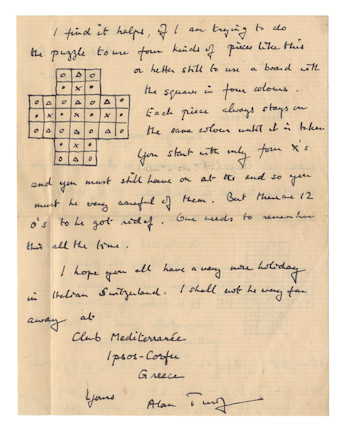 I find it helps, if I am trying to do
the puzzle to use four kinds of pieces like this
or better still to use a board with
the squares in four colours.
Each piece always stays on
the same colour until it is taken
You start with only four x's
and you must still have on at the end so you
must be very careful of them. But there are 12
o's to be got rid of. One needs to remember
this all the time.
I hope you all have a very nice holiday
in Italian Switzerland. I shall not be very far
away at
Club Mediterranée
Ipsos-Corfu
Greece
Yours
Alan Turing